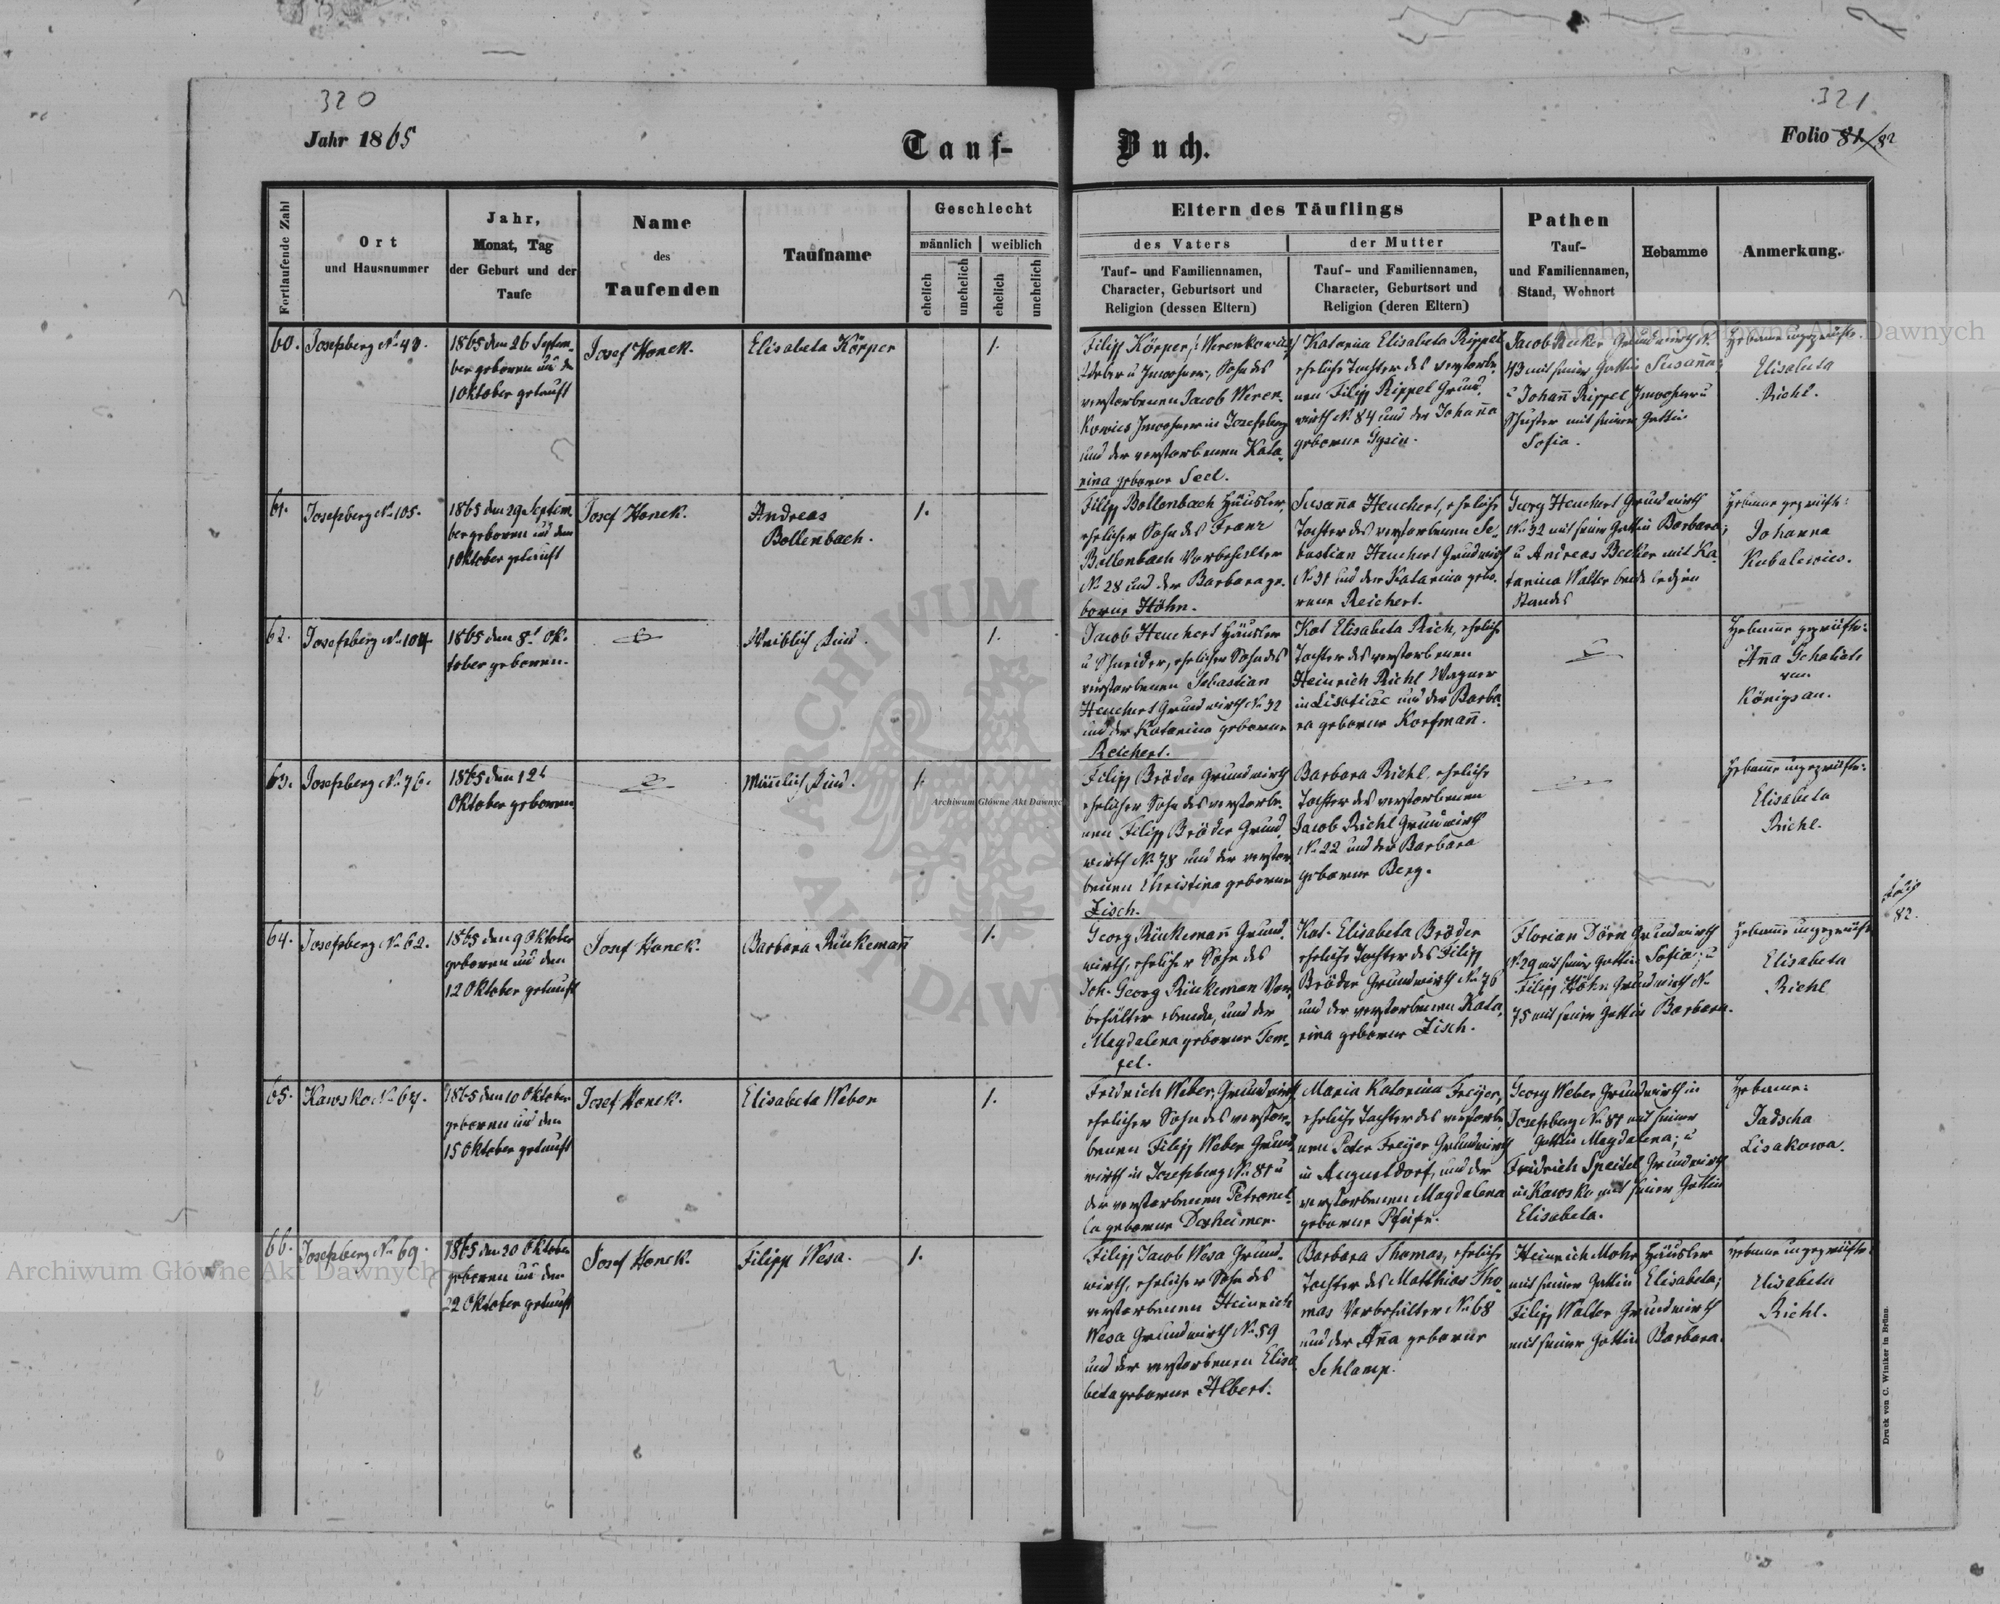 320
321
Jahr 1865
Tauf-
Buch.
Folio 81/82
Fortlaufende Zahl
Ort
und Hausnummer
Jahr,
Monat, Tag
der Geburt und der
Taufe
Name
des
Taufenden
Taufname
Geschlecht
männlich
weiblich
ehelich
unehelich
ehelich
unehelich
Eltern des Täuflings
des Vaters
Tauf- und Familiennamen,
Character, Geburtsort und
Religion (dessen Eltern)
der Mutter
Tauf- und Familiennamen,
Character, Geburtsort und
Religion (deren Eltern)
Pathen
Tauf-
und Familiennamen,
Stand, Wohnort
Hebamme
Anmerkung.
60.
Josefsberg No 43.
1865 den 26 Septem-
ber geboren und den
1 Oktober getauft
Josef Honek.
Elisabeta Körper
1.
Filipp Körper
u Inwohner, Sohn des
verstorbenen Jacob Weren-
kowics Inwohner in Josefsberg
und der verstorbenen Kata-
rina geborne Seel.
Katarina Elisabeta Rippel
eheliche Tochter des verstorbe-
nen Filipp Rippel Grund-
wirth No 84 und der Johanna
geborne
Jacob Becker Grundwirth No
43 mit seiner Gattin Susanna;
u Johann Rippel Inwohner u
Schuster mit seiner Gattin
Sofia.
Hebamme ungeprüfte
Elisabeta
Richl.
61.
Josefsberg No 105.
1865 den 29 Septem-
ber geboren und den
1 Oktober getauft
Josef Honek.
Andreas
Bollenbach.
1.
Filipp Bollenbach Häusler,
ehelicher Sohn des Franz
Bollenbach Vorbehalter
No 28 und der Barbara ge-
borne Höhn.
Susanna Heuchert, eheliche
Tochter des verstorbenen Se-
bastian Heuchert Grundwirth
No 31 und der Katarina gebo-
rene Reichert.
Georg Heuchert Grundwirth
No 32 mit seiner Gattin Barbara;
u Andreas Becker mit Ka-
tarina Walter beide ledigen
Standes
Hebamme geprüfte:
Johanna
Kubalewics.
62.
Josefsberg No 104.
1865 den 8t Ok-
tober geboren.
Weiblich Kind.
1.
Jacob Heuchert Häusler
u Schneider, ehelicher Sohn des
verstorbenen Sebastian
Heuchert Grundwirth No 32
und der Katarina geborne
Reichert.
Kat Elisabeta Rich, eheliche
Tochter des verstorbenen
Heinrich Richl Wagner
in und der Barba-
ra geborne Korfmann.
Hebamme geprüfte:
Anna
von
Königsau.
63.
Josefsberg No 76.
1865 den 12t
Oktober geboren
Männlich Kind.
1.
Filipp Bröder Grundwirth
ehelicher Sohn des verstorbe-
nen Filipp Bröder Grund-
wirth No 78 und der verstor-
benen Christina geborne
Zisch.
Barbara Richl eheliche
Tochter des verstorbenen
Jacob Richl Grundwirth
No 22 und der Barbara
geborne Berg.
Hebamme ungeprüfte:
Elisabeta
Richl.
64.
Josefsberg No 62.
1865 den 9 Oktober
geboren und den
12 Oktober getauft
Josef Honek.
Barbara Rinkemann
1.
Georg Rinkemann Grund-
wirth, ehelicher Sohn des
Joh. Georg Rinkeman Vor-
behälter ebenda, und der
Magdalena geborne Tem-
pel.
Kat. Elisabeta Bröder
eheliche Tochter des Filipp
Bröder Grundwirth No 76
und der verstorbenen Kata-
rina geborne Zisch.
Florian Dörn Grundwirth
No 29 mit seiner Gattin Sofia; u
Filipp Höhn Grundwirth No
75 mit seiner Gattin Barbara.
Hebamme ungeprüfte
Elisabeta
Richl
folio
82.
65.
Kawsko No 67.
1865 den 10 Oktober
geboren und den
15 Oktober getauft
Josef Honek.
Elisabeta Weber
1.
Fridrich Weber, Grundwirth,
ehelicher Sohn des verstor-
benen Filipp Weber Grund-
wirth in Josefsberg No 81 u
der verstorbenen Petronel-
la geborne Dexheimer.
Maria Katarina Freyer,
eheliche Tochter des verstorbe-
nen Peter Freyer Grundwirth
in Augustdorf, und der
verstorbenen Magdalena
geborne
Georg Weber Grundwirth in
Josefsberg No 81 mit seiner
Gattin Magdalena; u
Fridrich Speitel Grundwirth
in Kawsko mit seiner Gattin
Elisabeta.
Hebamme:
Jadscha
Lisakowa.
66.
Josefsberg No 69.
1865 den 20 Oktober
geboren und den
22 Oktober getauft
Josef Honek.
Filipp Wesa.
1.
Filipp Jacob Wesa Grund-
wirth, ehelicher Sohn des
verstorbenen Heinrich
Wesa Grundwirth No 59
und der verstorbenen Elisa-
beta geborne Albert.
Barbara Thomas, eheliche
Tochter des Matthias Tho-
mas Vorbehälter No 68
und der Anna geborne
Schlamp.
Heinrich Mohr Häusler
mit seiner Gattin Elisabeta;
Filipp Walter Grundwirth
mit seiner Gattin Barbara.
Hebamme ungeprüfte:
Elisabeta
Richl.
Druck von C. Winiker in Brünn.
Archiwum Główne Akt Dawnych
Archiwum Główne Akt Dawnych
Archiwum Główne Akt Dawnych